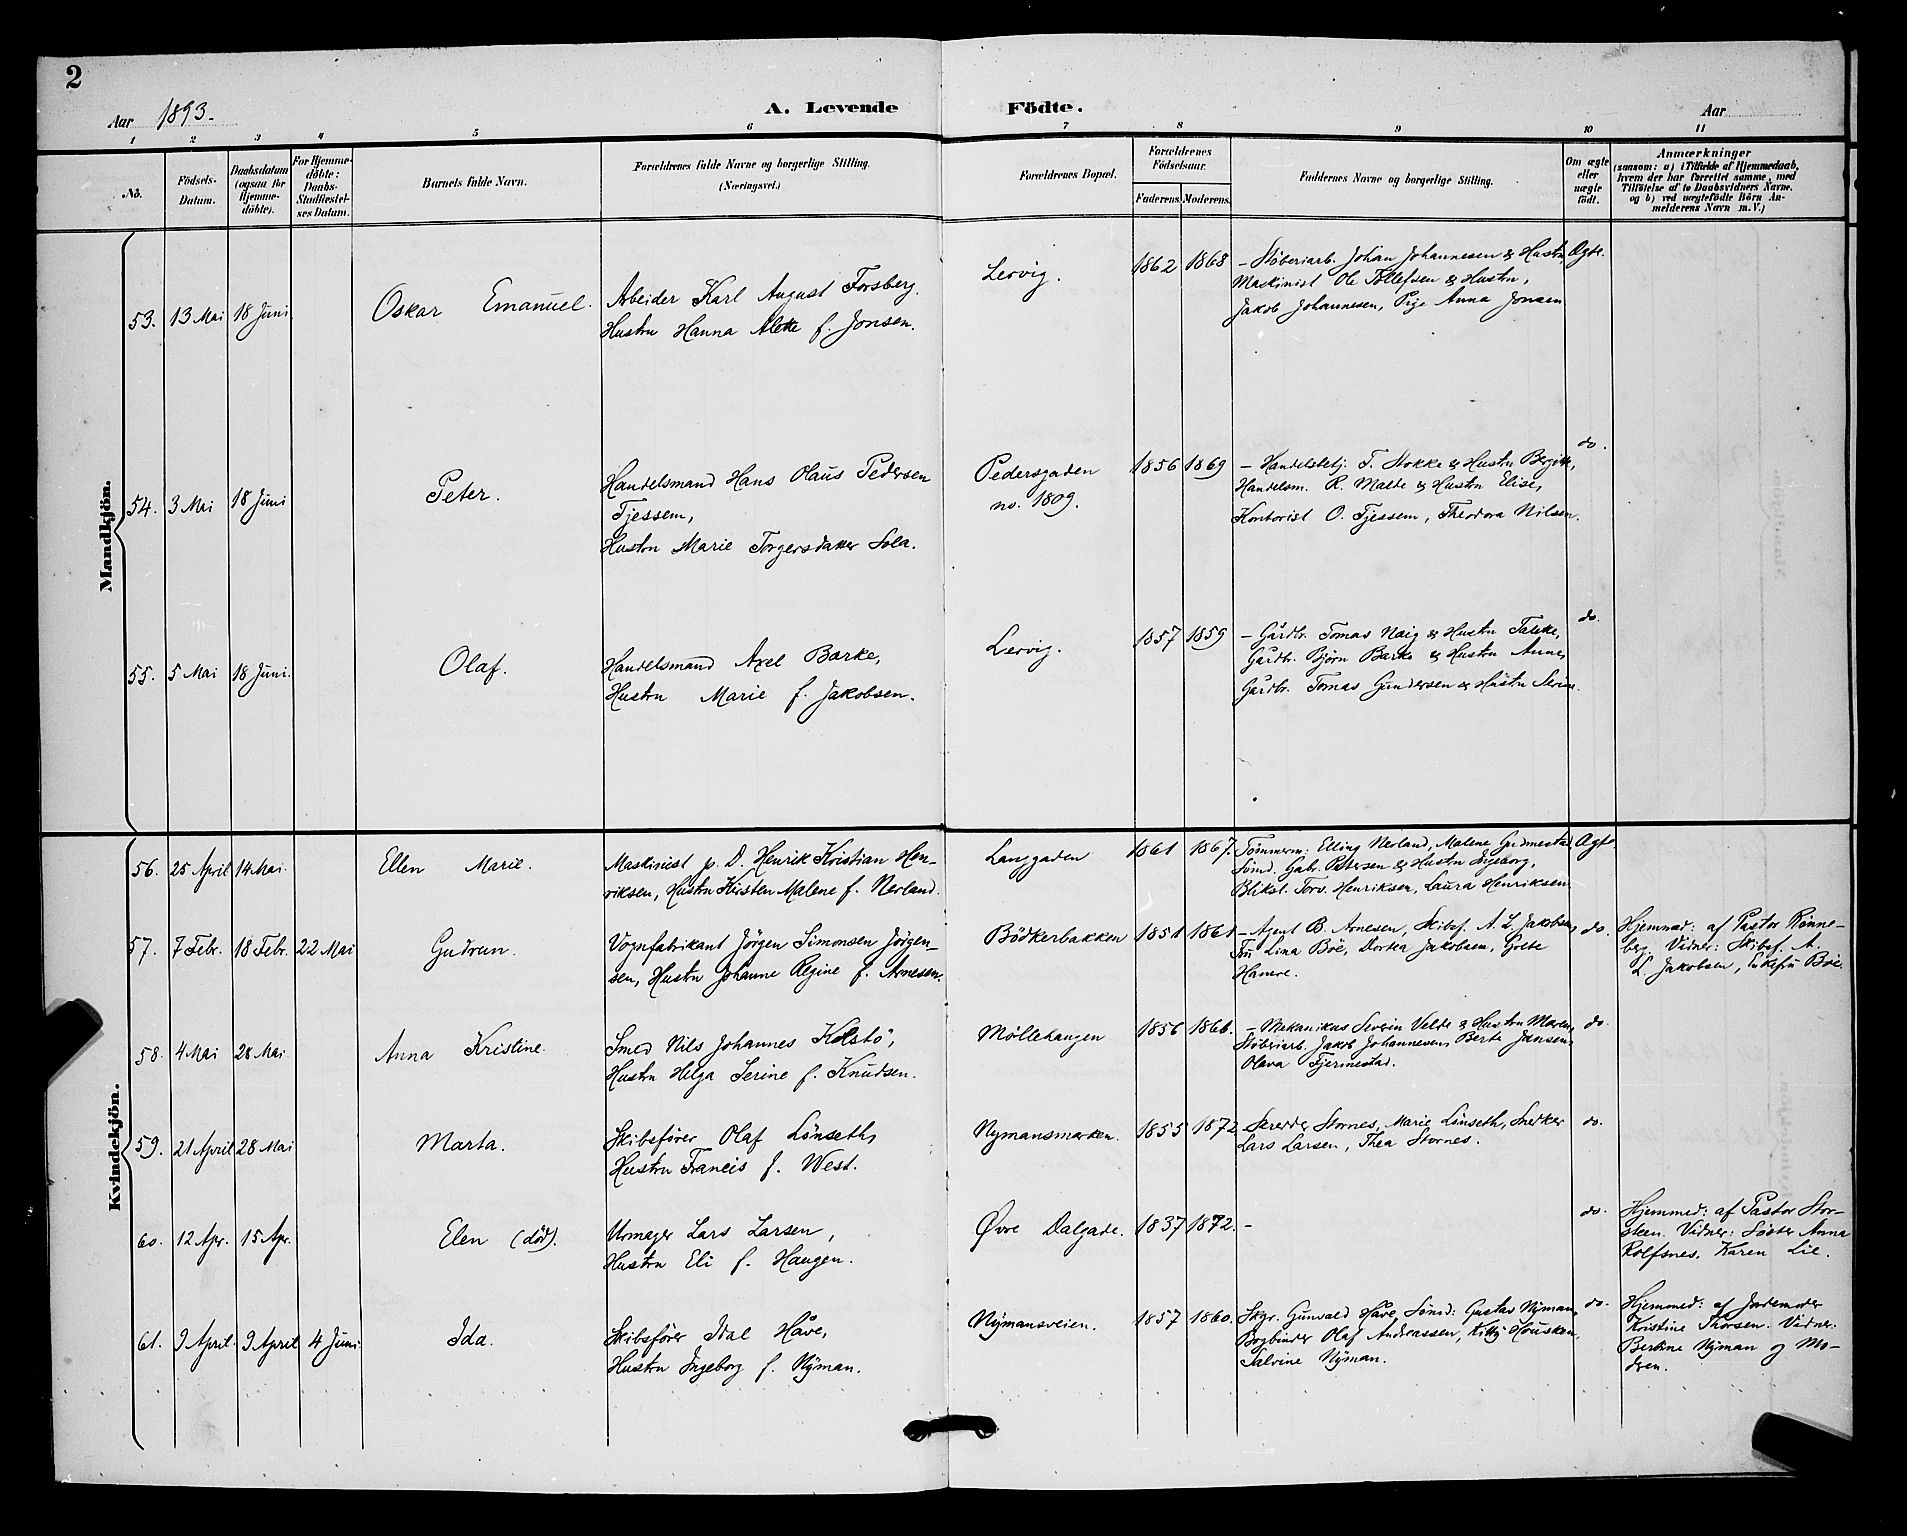 2
Aar 1893.
A. Levende Födte.
Aar
1 2 3 4 5 6 7 8 9 10 11
No.
Födsels-
Datum.
Daabsdatum
(ogsaa for
Hjemme-
döbte).
For Hjemme-
döbte:
Daabs-
Stadfæstel-
ses Datum.
Barnets fulde Navn.
Forældrenes fulde Navne og borgerlige Stilling.
(Næringsvei.)
Forældrenes Bopæl.
Forældrenes
Födselsaar.
Faderens. Moderens.
Faddernes Navne og borgerlige Stilling.
Om ægte
eller
uægte
födt.
Anmærkninger
(saasom: a) i Tilfælde af Hjemmedaab,
hvem der har forrettet samme, med
Tilföielse af to Daabsvidners Navne.
og b) ved uægtefödte Börn An-
melderens Navn m. V.)
Mandkjön.
53. 13 Mai 18 Juni
Oskar Emanuel.
Arbeider Karl August Forsberg.
Hustru Hanna Alette f. Jonsen.
Lervig.
1862 1868
- Støberiarb. Johan Johannesen & Hustru,
Maskinist Ole Tollefsen & Hustru,
Jakob Johannesen, Pige Anna Jonsen
Ægte.
54. 3 Mai 18 Juni
Peter.
Handelsmand Hans Olaus Pedersen
Tjessem,
Hustru Marie Torgersdatter Sola.
Pedersgaden
no. 1809.
1856 1869
- Handelsbetj. T. Stokke & Hustru Bergitte,
Handelsm. R. Malde & Hustru Elise,
Kontorist O. Tjessem, Theodora Nilsen.
do.
55. 5 Mai 18 Juni.
Olaf.
Handelsmand Axel Barke,
Hustru Marie f. Jakobsen.
Lervig.
1857 1859
- Gårdbr. Tomas Naig & Hustru Talette,
Gårdbr. Bjørn Barke & Hustru Anne,
Gårdbr. Tomas Gundersen & Hustru Serine.
do.
Kvindekjön.
56. 25 April 14 Mai.
Ellen Marie.
Maskinist p. D. Henrik Kristian Hen-
riksen, Hustru Kirsten Malene f. Nerland.
Langgaden
1861 1867.
Tømmerm: Elling Nerland, Malene Gudmestad,
Sömd. Gabr. Petersen & Hustru Ingeborg,
Bliksl. Torv. Henriksen, Laura Henriksen
Ægte
57. 7 Febr. 18 Febr. 22 Mai
Gudrun.
Vognfabrikant Jörgen Simonsen Jörgen-
sen, Hustru Johanne Regine f. Arnesen.
Bödkerbakken
1851 1861
- Agent B. Arnesen, Skibsf. A. L. Jakobsen,
Frü Lina Böe, Dortea Jakobsen, Grete
Hamre.
do.
Hjemmed: af Pastor Rönne-
berg. Vidner: Skibsf. A.
L. Jakobsen, Enkefrü Böe.
58. 4 Mai 28 Mai.
Anna Kristine.
Smed Nils Johannes Kolstö,
Hustru Helga Serine f. Knudsen.
Möllehaugen
1856 1866.
- Mekanikus Severin Velde & Hustru Maren,
Støberiarb. Jakob Johannesen, Berta Jansen,
Olava Fjermestad.
do.
59. 21 April 28 Mai
Marta.
Skibsfører Olaf Lönseth,
Hustru Francis f. West.
Nymansmarken.
1855 1872
Skredder Stornes, Marie Lönseth, Snedker
Lars Larsen, Thea Stornes.
do.
60. 12 Apr. 15 Apr.
Elen (död).
Urmager Lars Larsen,
Hustru Eli f. Haugen.
Øvre Dalgade.
1837 1872.
-
do.
Hjemmed: af Pastor Stor-
steen. Vidner: Söster Anna
Rolfsnes, Karen Lie.
61. 9 April. 9 April 4 Juni.
Ida.
Skibsfører Idal Håve,
Hustru Ingeborg f. Nyman.
Nymansveien.
1857 1860.
Skgr. Gunvald Håve, Sömd: Gustav Nyman,
Bogbinder Olaf Andreassen, Kitty Housken,
Salvine Nyman.
do.
Hjemmed: af Jordemoder
Kristine Thorsen. Vidner:
Bertine Nyman og Mo-
deren.